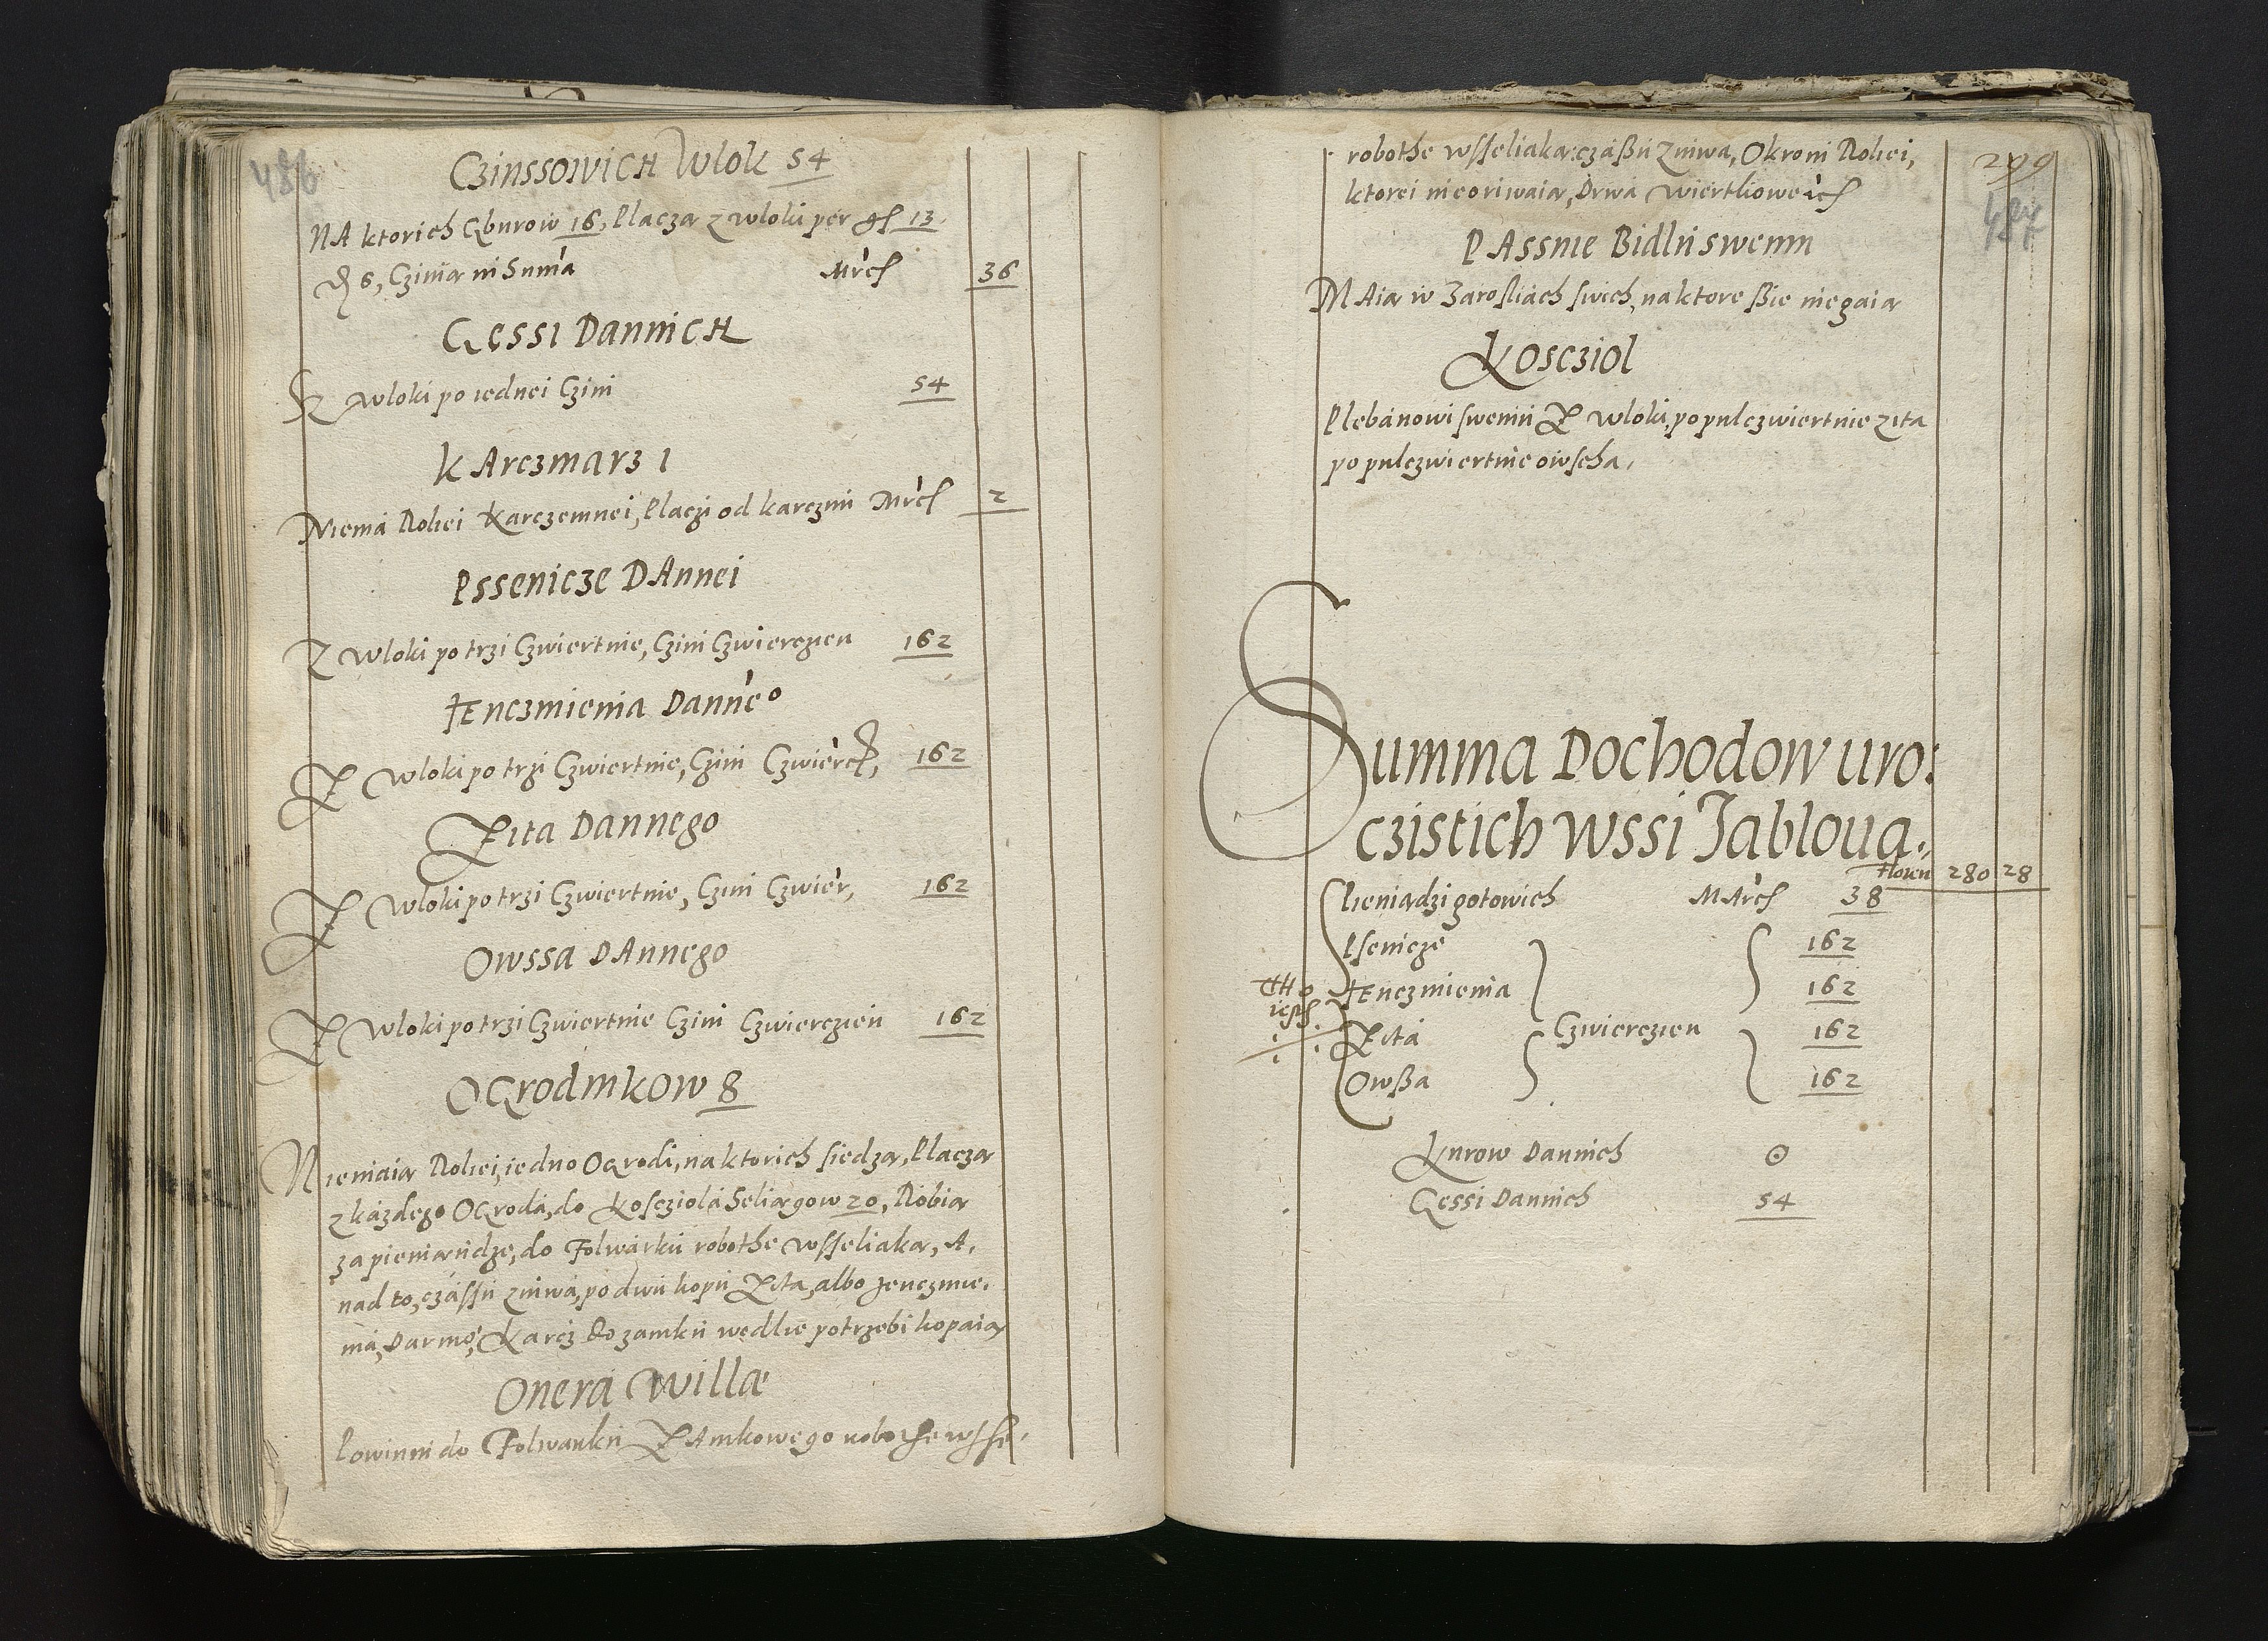 486
Czinssowich Wlok 54
NA ktorich Gburow 16, Placzą z wloki per gs 13.
₰ 6, Czinią ni Suma Mrcs 36
Gęssi Dannich
Z wloki po iednei Czini 54
KArczmarz 1
Niema Roliei Karczemnei, Placzi od karczmi Mrcs 2
Pssenicze DAnnei
Z wloki po trzi Czwiertnie, Czini Czwierczien 162
IEnczmienia Danneo
Z wloki po trzi Czwiertnie, Czini Czwiercz, 162
Zita Dannego
Z wloki po trzi Czwiertnie, Czini Czwier, 162
Owssa DAnnego
Z wloki po trzi Czwiertnie Czini Czwierczien 162
OGrodnikow 8
Niemaią Roliei, iedno OGrodi, na ktorich siedzą, Placzą
z kazdego OGroda, do Kosciola Seliągow 20, Robią
za pieniąndze, do Folwarku robothe wsseliaką, A,
nad to, czassu zniwa, po dwu kopu Zita, albo Jenczmie.
nia, Darmo, Karcz do zamku wedlie potrzebi kopaią
Onera Willæ
Powinni do Folwarku ZAmkowego robothe wsse.
robothe wsseliaką: czaßu Zniwa, Okrom Roliei,
ktorei nie oriwaią, Drwa wiertliowe ics
299
487
PAssnie Bidlu swemu
MAią w Zarosliach swich, na ktore ßie niegaią
Kosczioł
Plebanowi swemu Z wloki, po pulczwiertnie zita
po pulczwiertnie owscha,
Summa Dochodow uro:
czistich wssi Jabloua.,
floren 280 28
Pieniądzi gotowich MArcs 38
Psenicze 162
IEnczmienia 162
Czwierczien
Zita 162
Owßa 162
Kurow Dannich 0
Gęssi Dannich 54